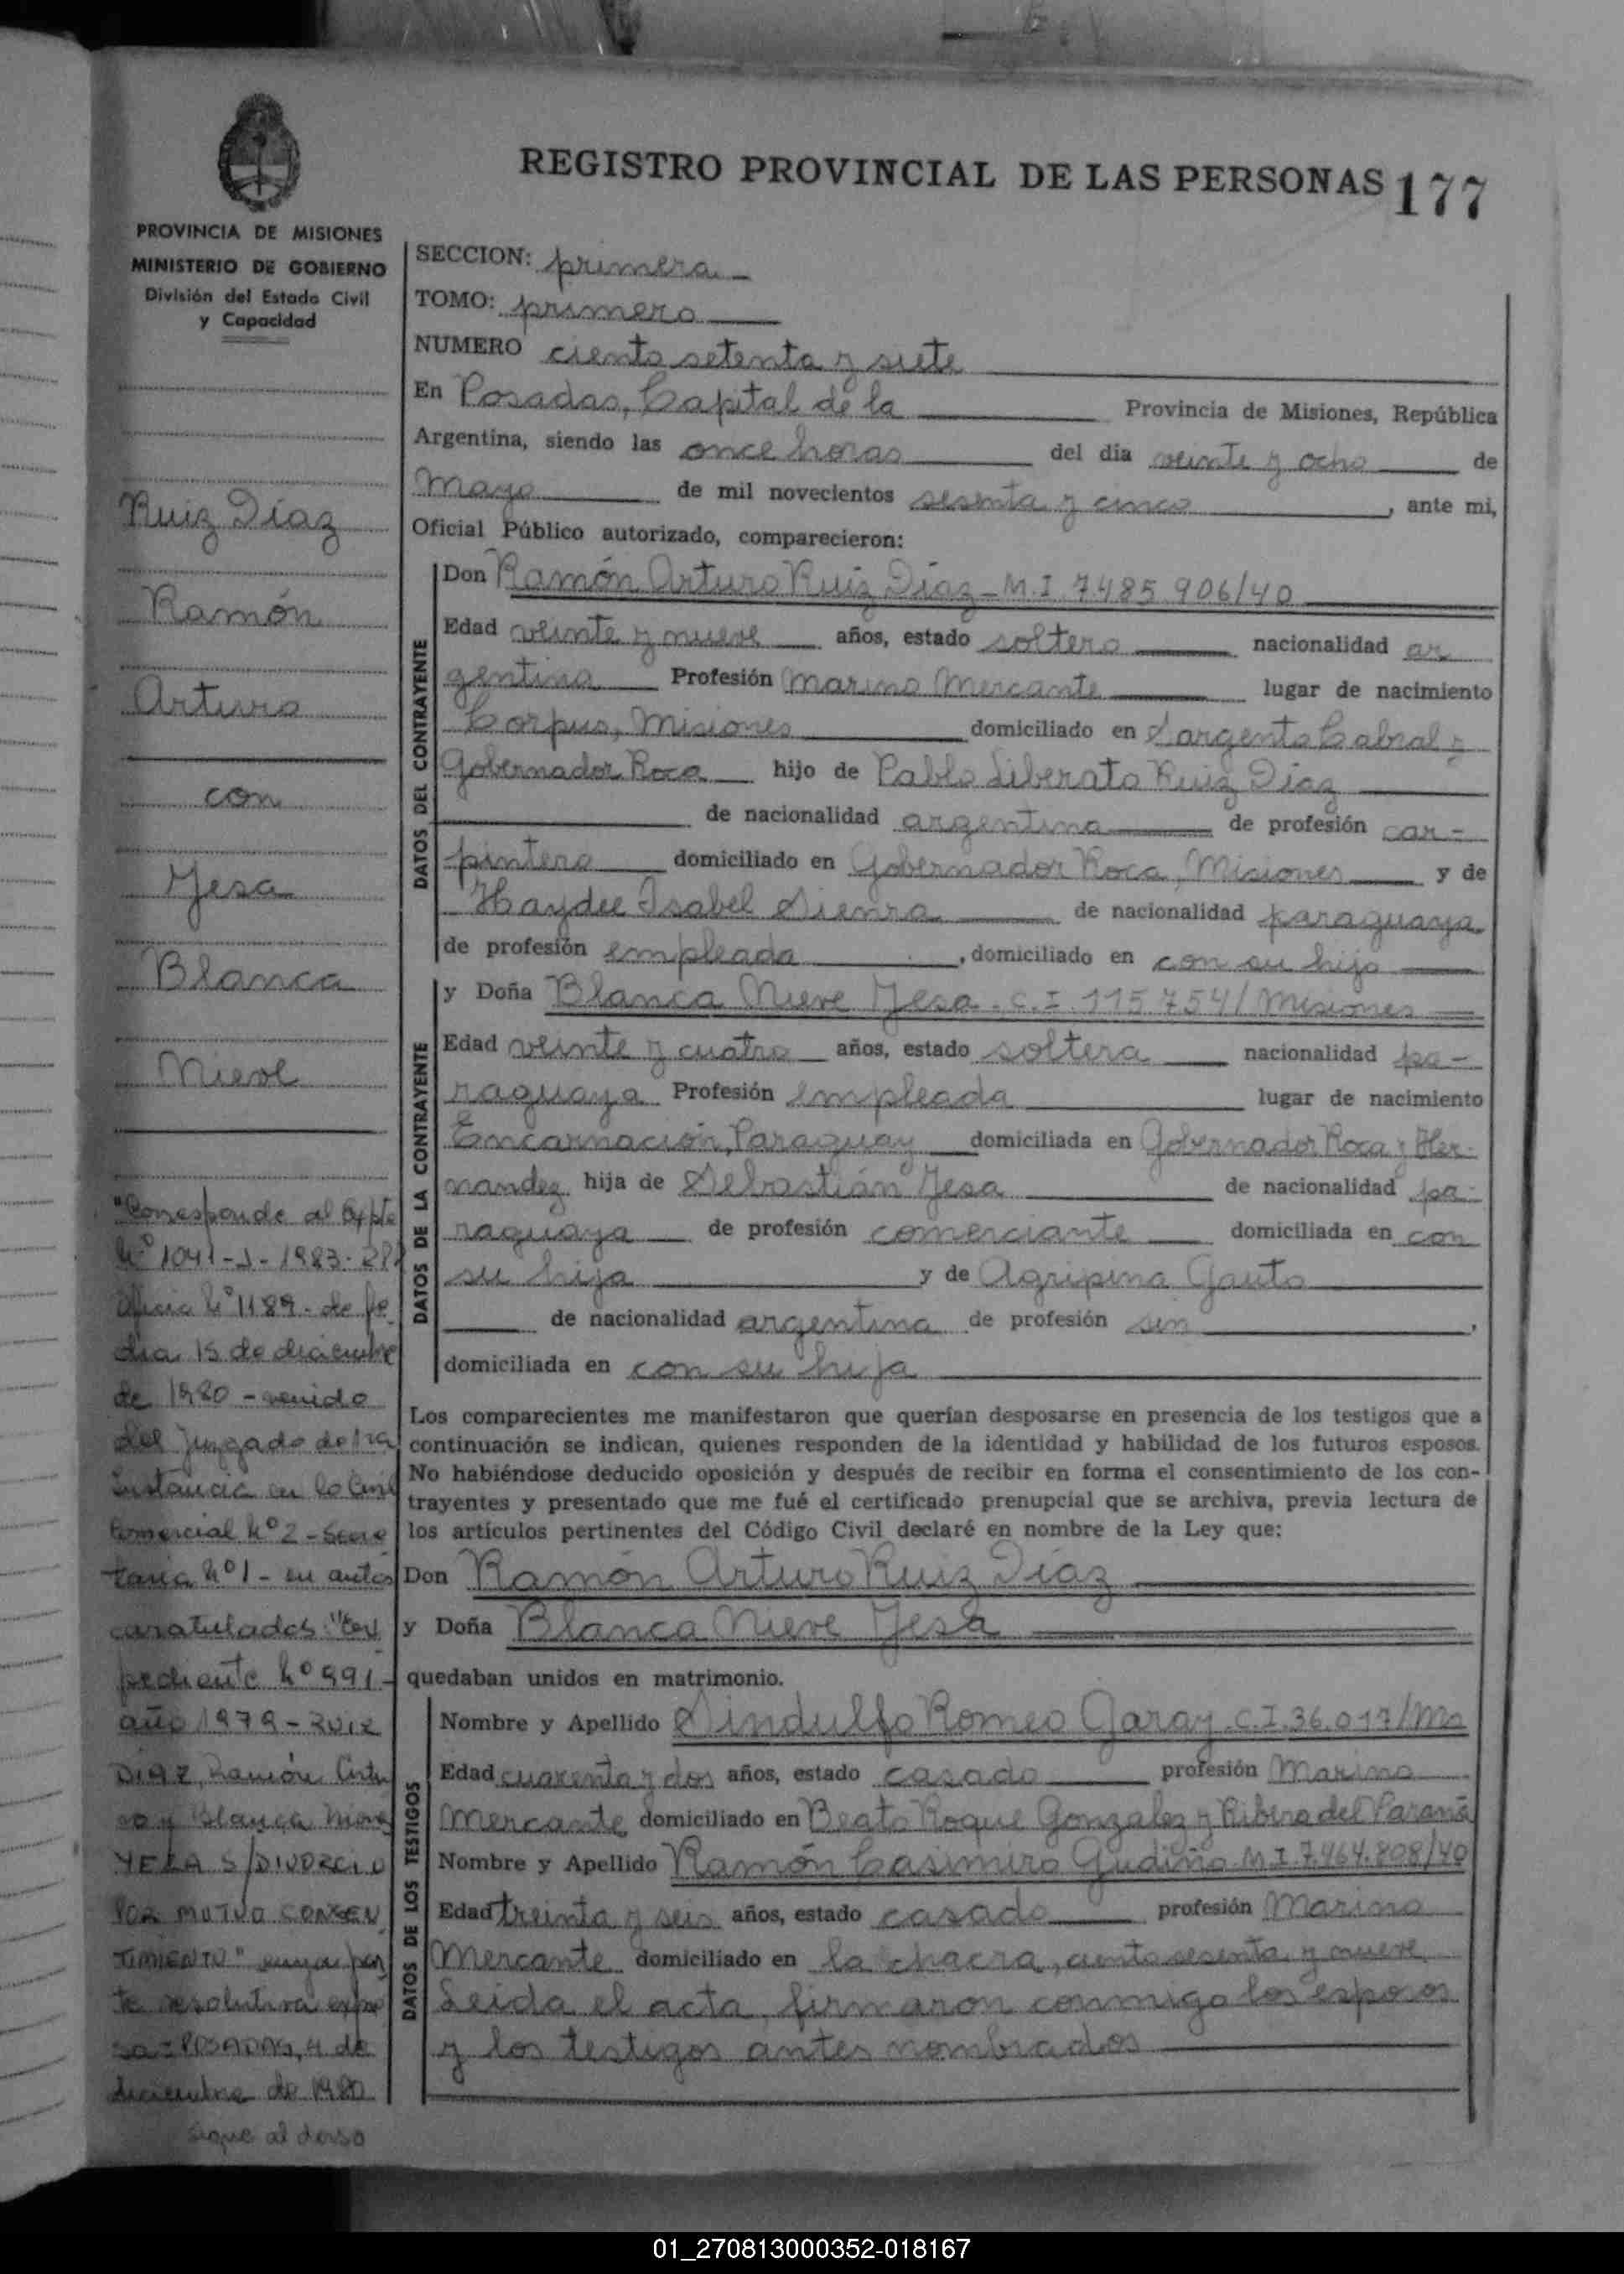 REGISTRO PROVINCIAL DE LAS PERSONAS 177
PROVINCIA DE MISIONES
MINISTERIO DE GOBIERNO
División del Estado Civil
y Capacidad
Ruiz Díaz
Ramón
Arturo
con
Yesa
Blanca
Nieve
"Corresponde al Expte
Nº 1041-J-1983-
Oficio Nº 1189- de fe
cha 15 de diciembre
de 1980 - venido
del Juzgado de 1ra
instancia en lo Civil
Comercial Nº 2 - Secre
taria Nº 1 - en autos
caratulados: "Ex
pediente Nº 991-
año 1979 - RUIZ
DIAZ, Ramón Artu
ro y Blanca Nieve
YEZA S/DIVORCIO
POR MUTUO CONSEN
TIMIENTO" cuya par
te resolutiva expre
sa: POSADAS, 4 de
diciembre de 1980
sigue al dorso
SECCION: primera
TOMO: primero
NUMERO ciento setenta y siete
En Posadas, Capital de la Provincia de Misiones, República
Argentina, siendo las once horas del día veinte y ocho de
mayo de mil novecientos sesenta y cinco, ante mi,
Oficial Público autorizado, comparecieron:
DATOS DEL CONTRAYENTE
Don Ramón Arturo Ruiz Díaz - M.I. 7.485.906/40
Edad veinte y nueve años, estado soltero nacionalidad ar
gentina Profesión Marino Mercante lugar de nacimiento
Corpus, Misiones domiciliado en Sargento Cabral y
Gobernador Roca hijo de Pablo Liberato Ruiz Díaz
de nacionalidad argentina de profesión car-
pintero domiciliado en Gobernador Roca, Misiones y de
Haydee Isabel Sienra de nacionalidad paraguaya
de profesión empleada, domiciliado en con su hijo
DATOS DE LA CONTRAYENTE
y Doña Blanca Nieve Yesa. C.I. 115.754/Misiones
Edad veinte y cuatro años, estado soltera nacionalidad pa-
raguaya Profesión empleada lugar de nacimiento
Encarnación, Paraguay domiciliada en Gobernador Roca y Her-
nandez hija de Sebastián Yesa de nacionalidad pa-
raguaya de profesión comerciante domiciliada en con
su hija y de Agripina Gauto
de nacionalidad argentina de profesión sin,
domiciliada en con su hija
Los comparecientes me manifestaron que querían desposarse en presencia de los testigos que a
continuación se indican, quienes responden de la identidad y habilidad de los futuros esposos.
No habiéndose deducido oposición y después de recibir en forma el consentimiento de los con-
trayentes y presentado que me fué el certificado prenupcial que se archiva, previa lectura de
los artículos pertinentes del Código Civil declaré en nombre de la Ley que:
Don Ramón Arturo Ruiz Díaz
y Doña Blanca Nieve Yesa
quedaban unidos en matrimonio.
DATOS DE LOS TESTIGOS
Nombre y Apellido Sindulfo Romeo Garay. C.I. 36.017/Ms
Edad cuarenta y dos años, estado casado profesión Marino
Mercante domiciliado en Beato Roque Gonzalez y Ribera del Paraná
Nombre y Apellido Ramón Casimiro Gudiño M.I. 7.464.808/40
Edad treinta y seis años, estado casado profesión Marino
Mercante domiciliado en la chacra, ciento sesenta y nueve
Leída el acta, firmaron conmigo los esposos
y los testigos antes nombrados
01_270813000352-018167